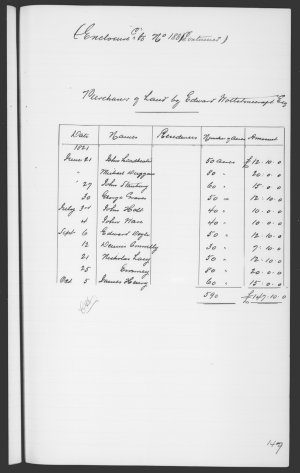 (Enclosure C/5 No 182 (continued)
Purchases of Land by Edward Wollstonecraft Esq
Date Names Residences Number of Acres Amount
1821
June 21 John Laughlin 50 acres £12.10.0
" Michael Duggan 80 " 20.0.0
" 27 John Stunting 60 " 15.0.0
30 George Graves 50 " 12.10.0
July 3rd John Holt 40 " 10.0.0
4 John Ware 40 " 10.0.0
Sept 6 Edward Doyle 50 " 12.10.0
12 Dennis Connelly 30 " 7.10.0
21 Nicholas Lacy 50 " 12.10.0
25 80 " 20.0.0
Oct 5 James Henry 60 " 15.0.0
590 £147.10.0
147